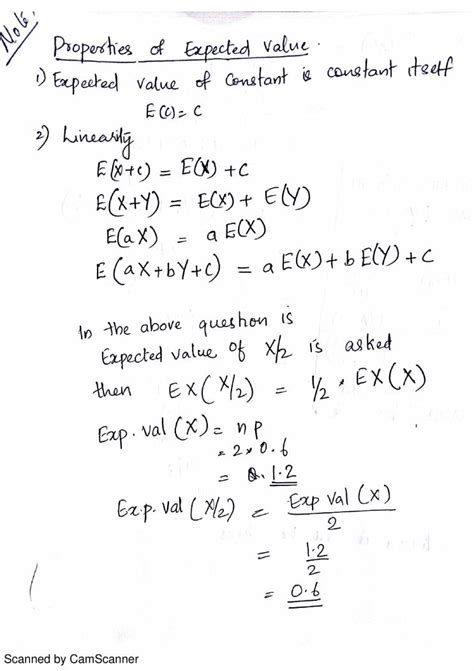 Note.
Properties of Expected Value.
1) Expected value of constant is constant itself
E(c) = c
2) Linearity
E(X+c) = E(X) + c
E(X+Y) = E(X) + E(Y)
E(aX) = a E(X)
E(aX+bY+c) = a E(X) + b E(Y) + c
In the above question is
Expected value of X/2 is asked
then EX(X/2) = 1/2 * EX(X)
Exp. val (X) = n p
= 2 * 0.6
= 1.2
Exp. val (X/2) = Exp val (X) / 2
= 1.2 / 2
= 0.6
Scanned by CamScanner